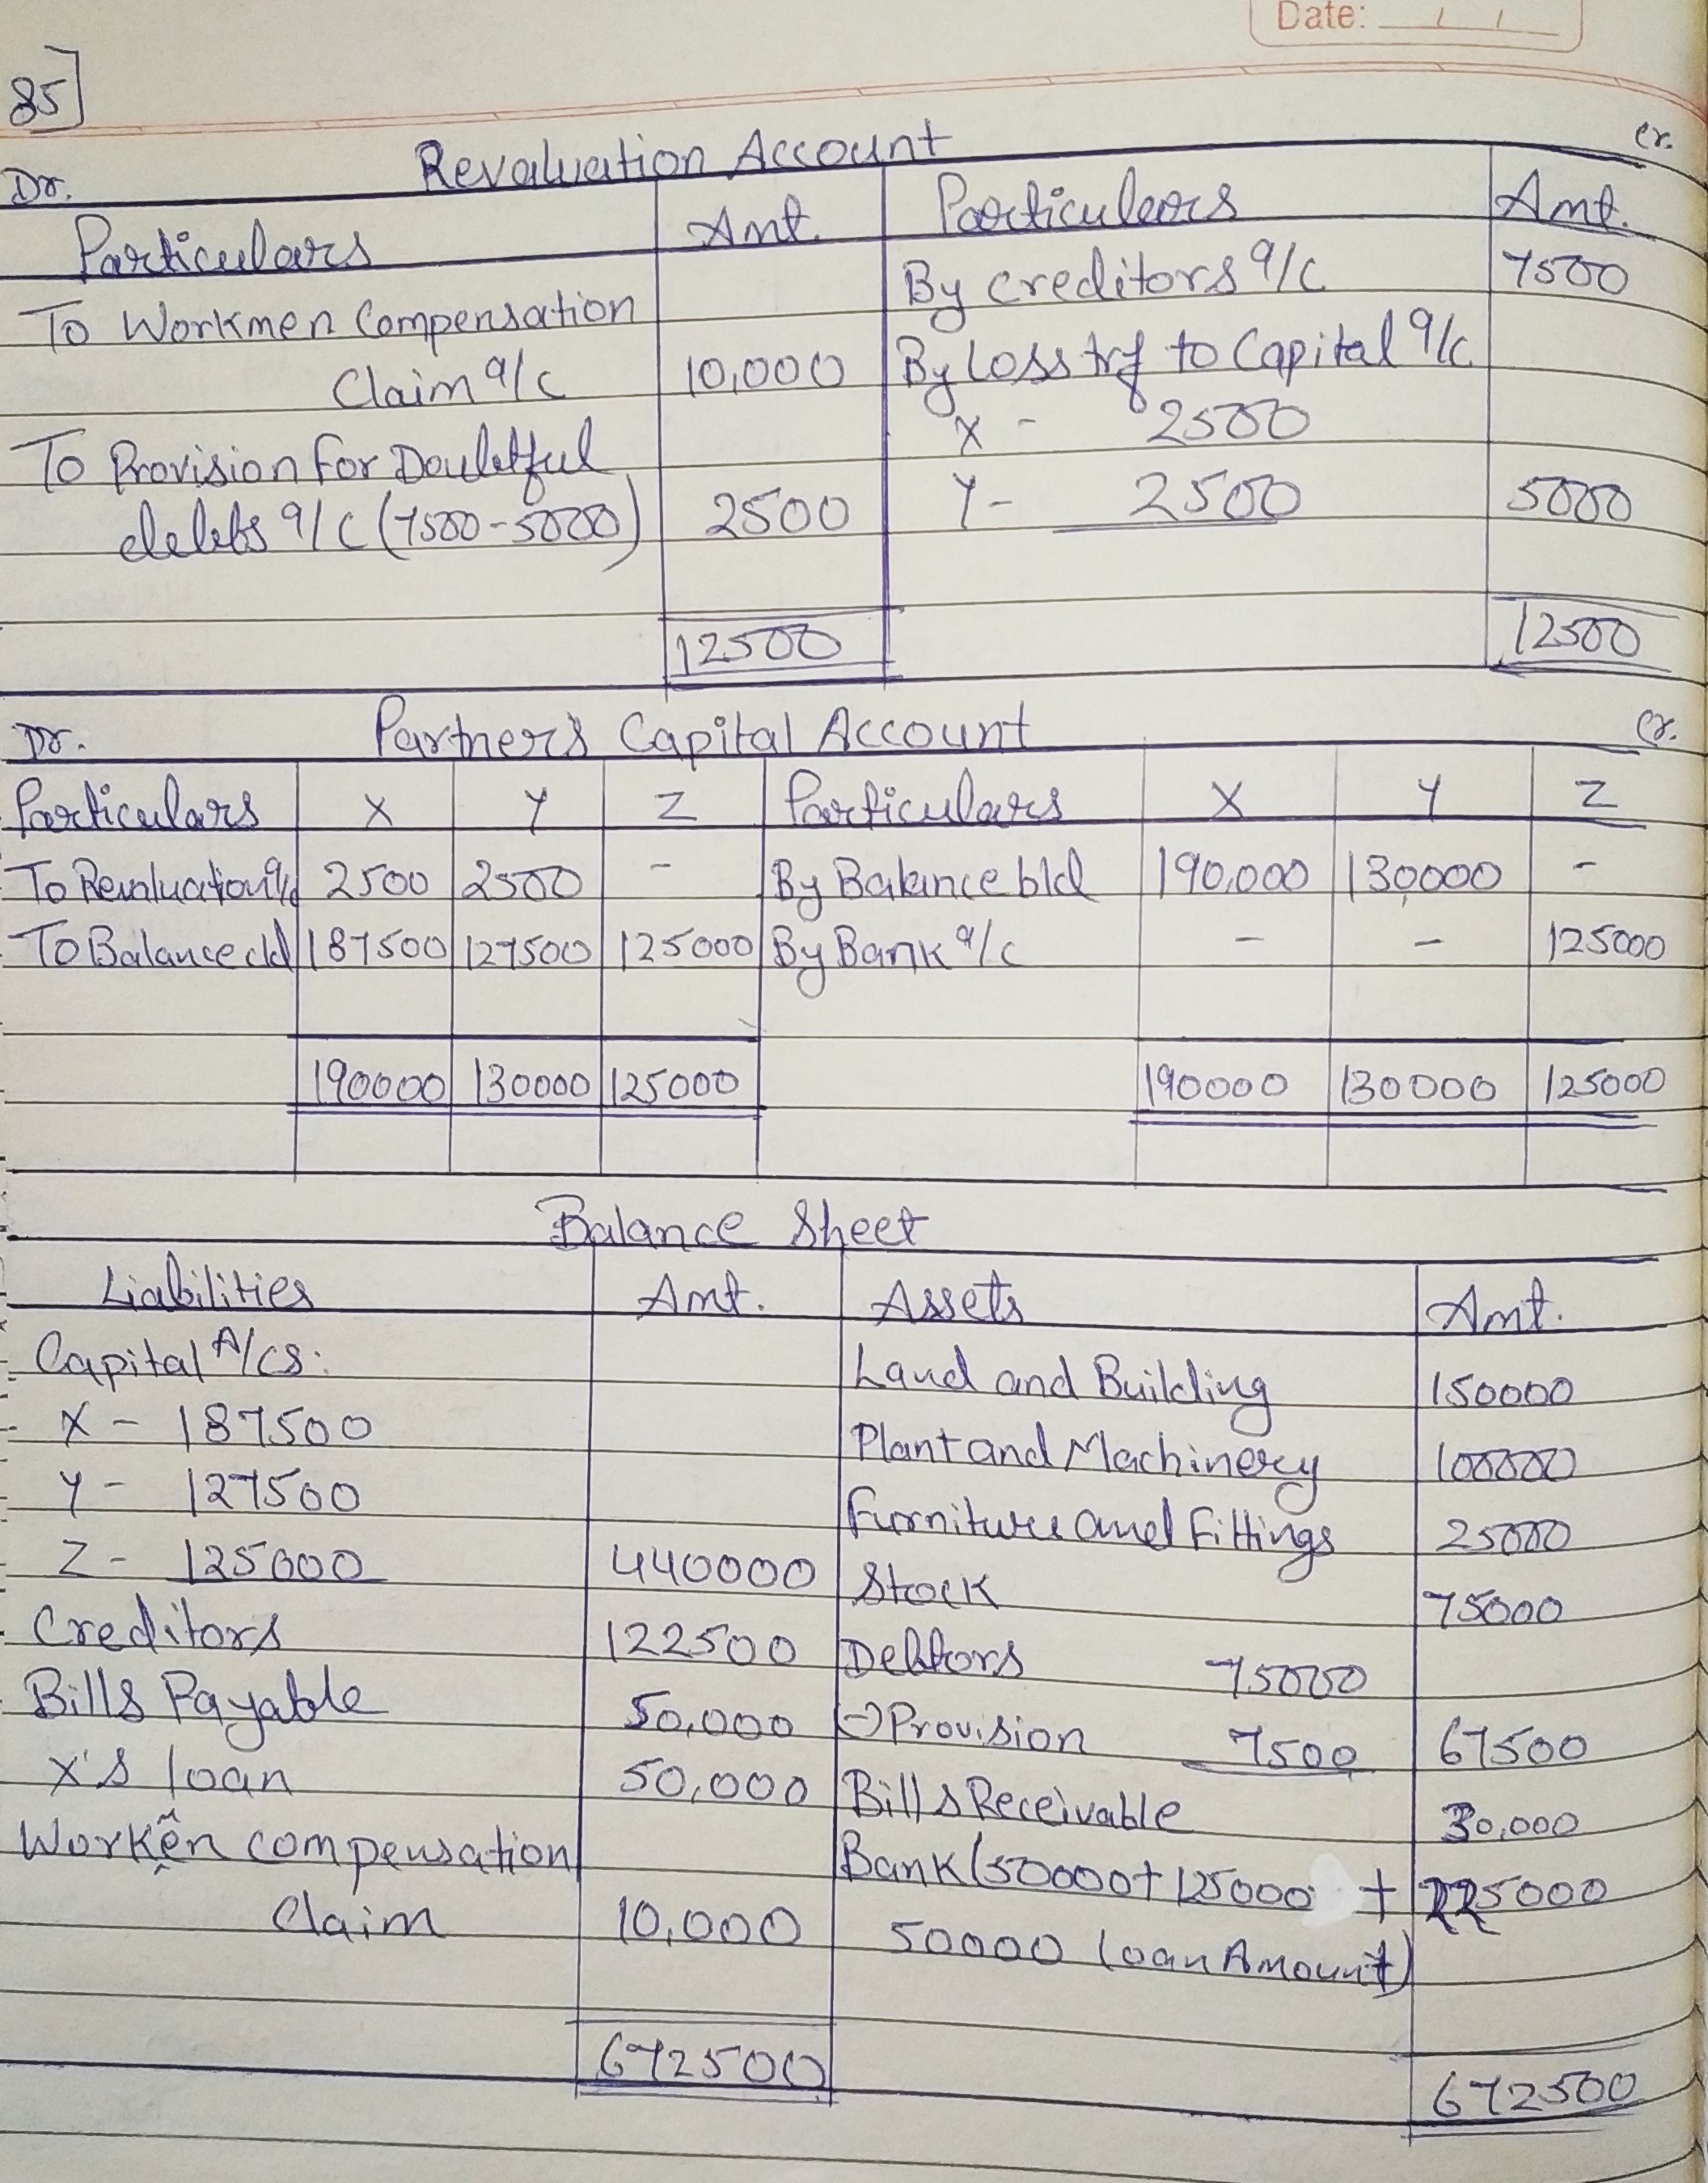 Date: / /
85]
Revaluation Account
Dr. Cr.
Particulars Amt. Particulars Amt.
By Creditors a/c 7500
To Workmen Compensation
Claim a/c 10,000 By Loss trf to Capital a/c
X - 2500
To Provision For Doubtful
debts a/c (7500-5000) 2500 Y- 2500 5000
12500 12500
Dr. Partner's Capital Account Cr.
Particulars X Y Z Particulars X Y Z
To Revaluation a/c 2500 2500 - By Balance b/d 190,000 130000 -
To Balance c/d 187500 127500 125000 By Bank a/c - - 125000
190000 130000 125000 190000 130000 125000
Balance Sheet
Liabilities Amt. Assets Amt.
Capital A/cs: Land and Building 150000
X - 187500 Plant and Machinery 100000
Y - 127500 Furniture and Fittings 25000
Z - 125000 440000 Stock 75000
Creditors 122500 Debtors 75000
Bills Payable 50,000 (-) Provision 7500 67500
X's loan 50,000 Bills Receivable 30,000
Worken compensation Bank (50000+125000 + 225000
Claim 10,000 50000 loan Amount)
672500 672500